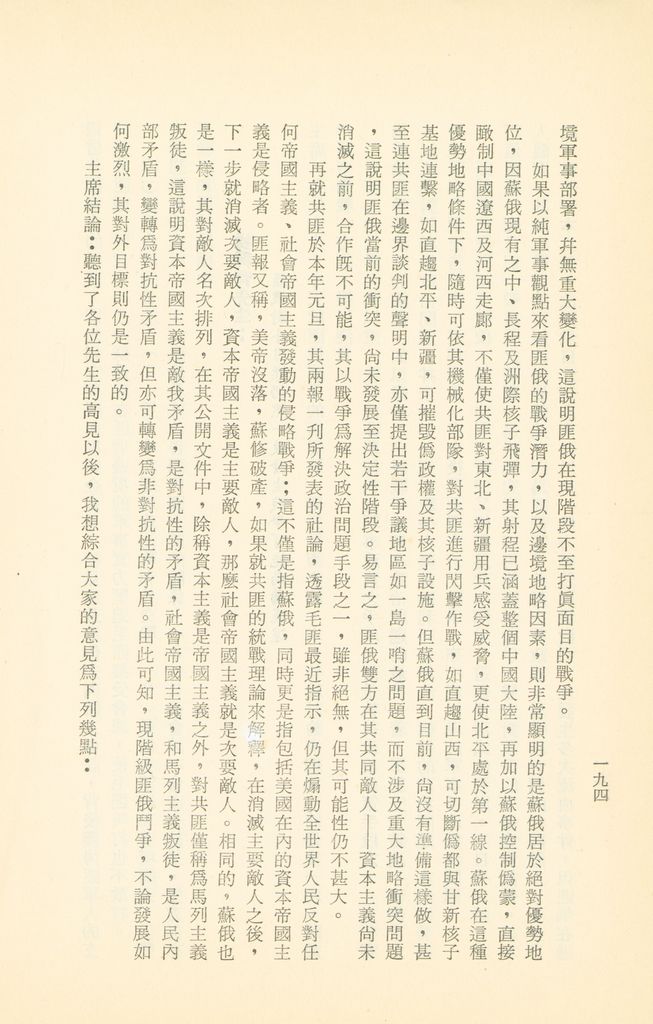 境軍事部署，幷無重大變化，這說明匪俄在現階段不至打眞面目的戰爭。
如果以純軍事觀點來看匪俄的戰爭潛力，以及邊境地略因素，則非常顯明的是蘇俄居於絕對優勢地
位，因蘇俄現有之中、長程及洲際核子飛彈，其射程已涵蓋整個中國大陸，再加以蘇俄控制僞蒙，直接
瞰制中國遼西及河西走廊，不僅使共匪對東北、新疆用兵感受威脅，更使北平處於第一線。蘇俄在這種
優勢地略條件下，隨時可依其機械化部隊，對共匪進行閃擊作戰，如直趨山西，可切斷僞都與甘新核子
基地連繫，如直趨北平、新疆，可摧毀僞政權及其核子設施。但蘇俄直到目前，尙沒有準備這樣做，甚
至連共匪在邊界談判的聲明中，亦僅提出若干爭議地區如一島一哨之問題，而不涉及重大地略衝突問題
，這說明匪俄當前的衝突，尙未發展至決定性階段。易言之，匪俄雙方在其共同敵人——資本主義尙未
消滅之前，合作旣不可能，其以戰爭爲解決政治問題手段之一，雖非絕無，但其可能性仍不甚大。
再就共匪於本年元旦，其兩報一刋所發表的社論，透露毛匪最近指示，仍在煽動全世界人民反對任
何帝國主義、社會帝國主義發動的侵略戰爭；這不僅是指蘇俄，同時更是指包括美國在內的資本帝國主
義是侵略者。匪報又稱，美帝沒落，蘇修破產，如果就共匪的統戰理論來解釋，在消滅主要敵人之後，
下一步就消滅次要敵人，資本帝國主義是主要敵人，那麼社會帝國主義就是次要敵人。相同的，蘇俄也
是一樣，其對敵人名次排列，在其公開文件中，除稱資本主義是帝國主義之外，對共匪僅稱爲馬列主義
叛徒，這說明資本帝國主義是敵我矛盾，是對抗性的矛盾，社會帝國主義，和馬列主義叛徒，是人民內
部矛盾，變轉爲對抗性矛盾，但亦可轉變爲非對抗性的矛盾。由此可知，現階級匪俄鬥爭，不論發展如
何激烈，其對外目標則仍是一致的。
主席結論：聽到了各位先生的高見以後，我想綜合大家的意見爲下列幾點：
一九四